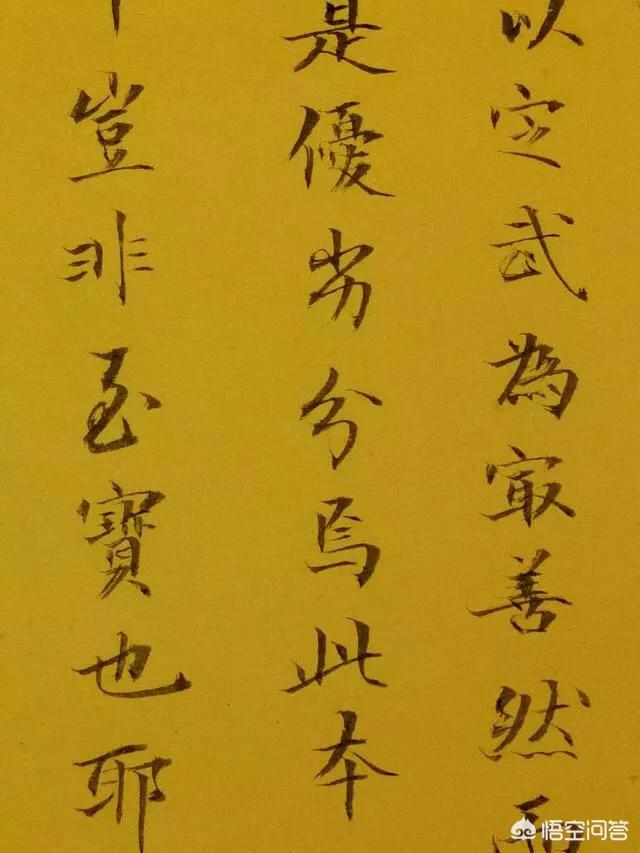 以定武為㝡善然而
是優劣分焉此本
豈非至寶也耶
悟空问答